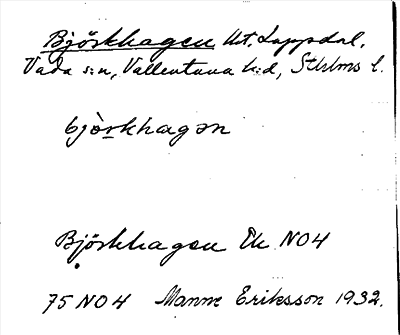 Björkhagen Ut. Lappdal,
Vada s:n, Vallentuna h:d, Sthlms l.
bjòrkhagən
Björkhagen Ek NO4
75 NO4 Manne Eriksson 1932.